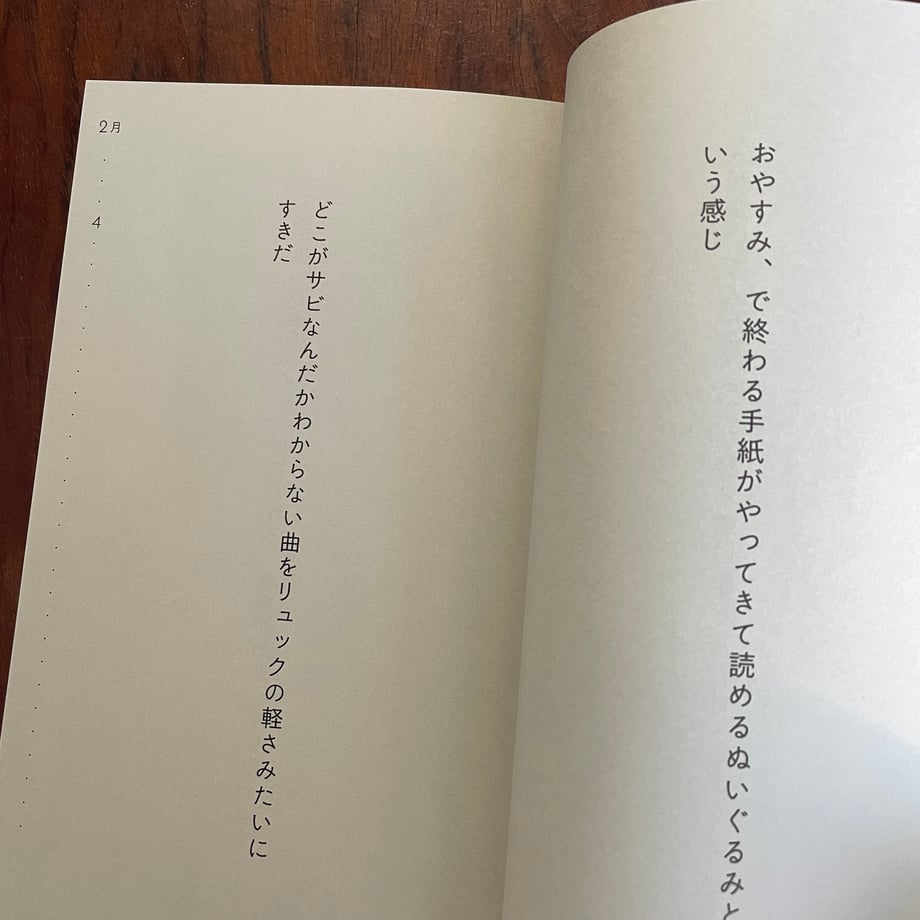 おやすみ、で終わる手紙がやってきて読めるぬいぐるみと
いう感じ
2月
4
どこがサビなんだかわからない曲をリュックの軽さみたいに
すきだ